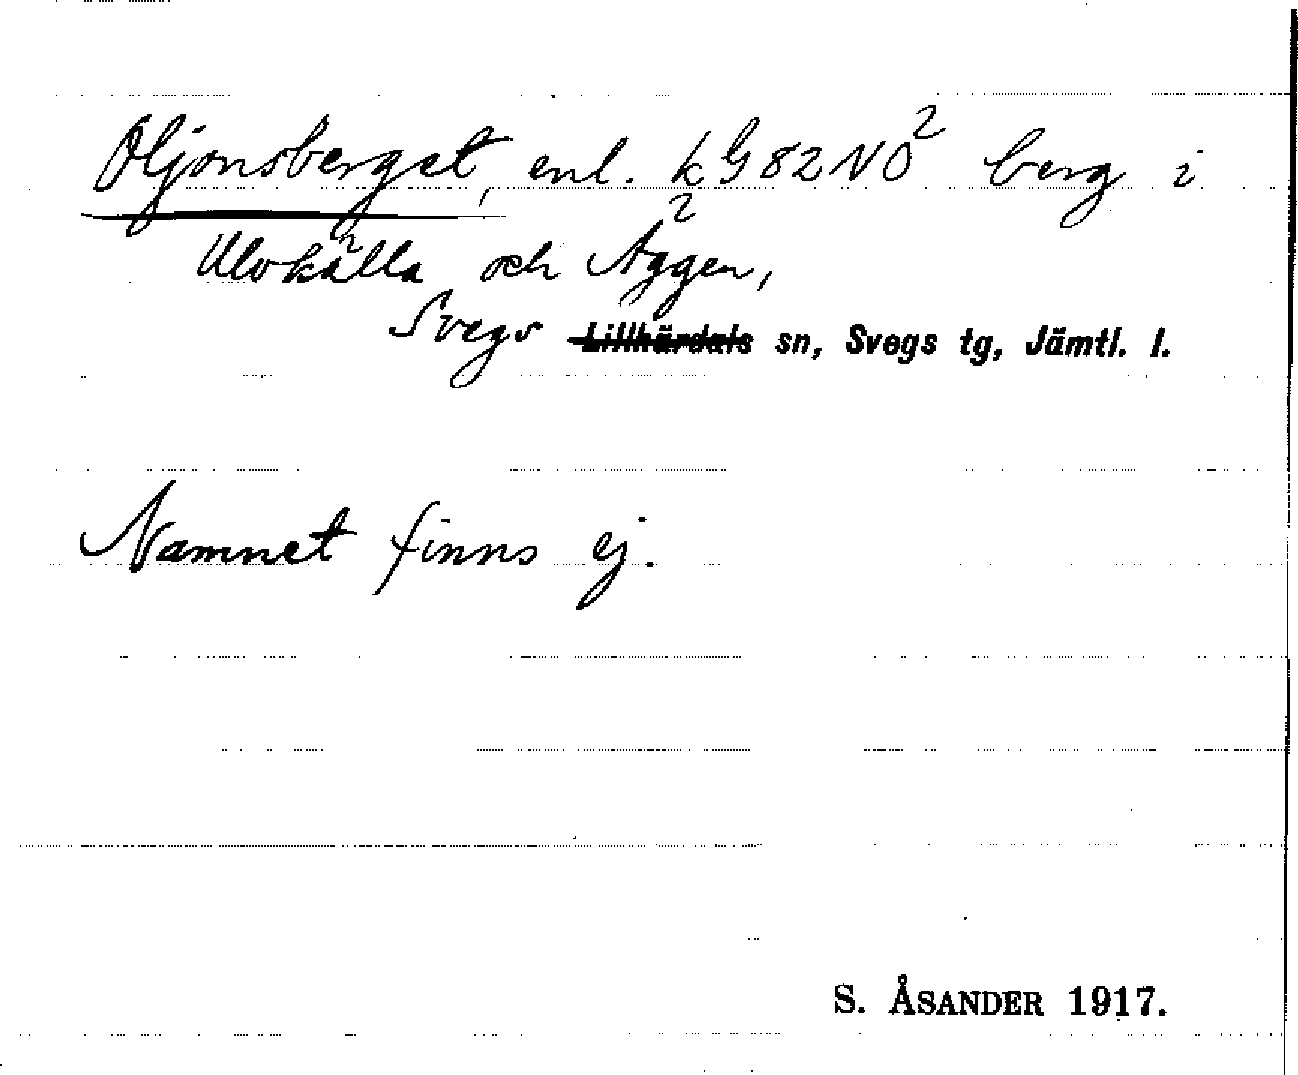 Oljonsberget, enl. k G82NO² berg i
Ulvkälla och Äggen,
Svegs Lillhärdals sn, Svegs tg, Jämtl. l.
Namnet finns ej.
S. ÅSANDER 1917.